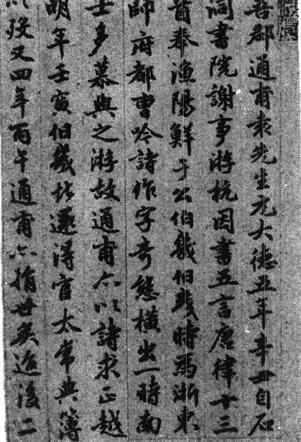 吾郡通甫袁先生元大德五年辛丑自石
洞書院謝事游杭因書五言唐律十三
首奉漁陽鮮于公伯幾伯幾時爲浙東
帥府都曹吟詩作字奇態橫出一時南
士多慕與之游故通甫亦以詩求正越
明年壬寅伯幾北還得官太常典簿
以歿又四年丙午通甫亦捐世矣迨後二